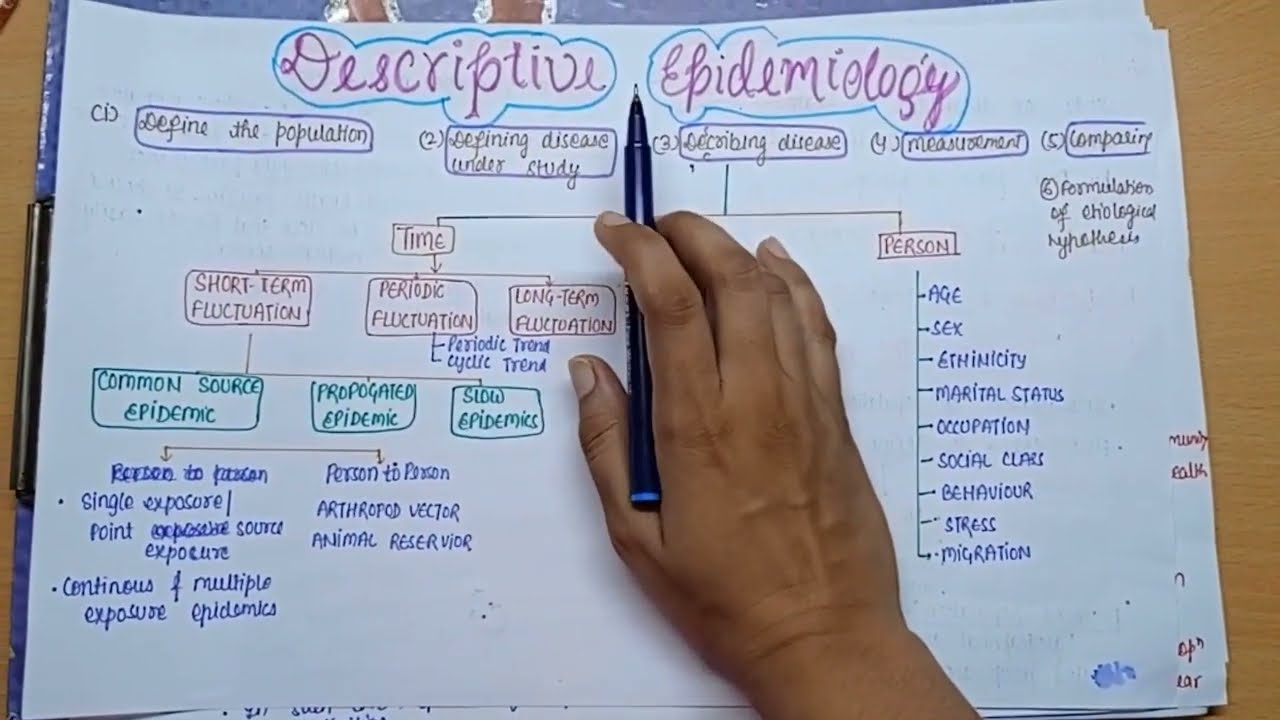 Descriptive Epidemiology
(1) Define the population
(2) Defining disease
under study
(3) Decribing disease
(4) measurement
(5) Comparing
(6) Formulation
of etiological
hypothesis
TIME
PERSON
SHORT-TERM
FLUCTUATION
PERIODIC
FLUCTUATION
LONG-TERM
FLUCTUATION
Periodic Trend
Cyclic Trend
COMMON SOURCE
EPIDEMIC
PROPOGATED
EPIDEMIC
SLOW
EPIDEMICS
Person to Person
ARTHROPOD VECTOR
ANIMAL RESERVIOR
• Single exposure/
Point source
exposure
• Continous & multiple
exposure epidemics
AGE
SEX
ETHINICITY
MARITAL STATUS
OCCUPATION
SOCIAL CLASS
BEHAVIOUR
STRESS
MIGRATION
ealth
n
ear